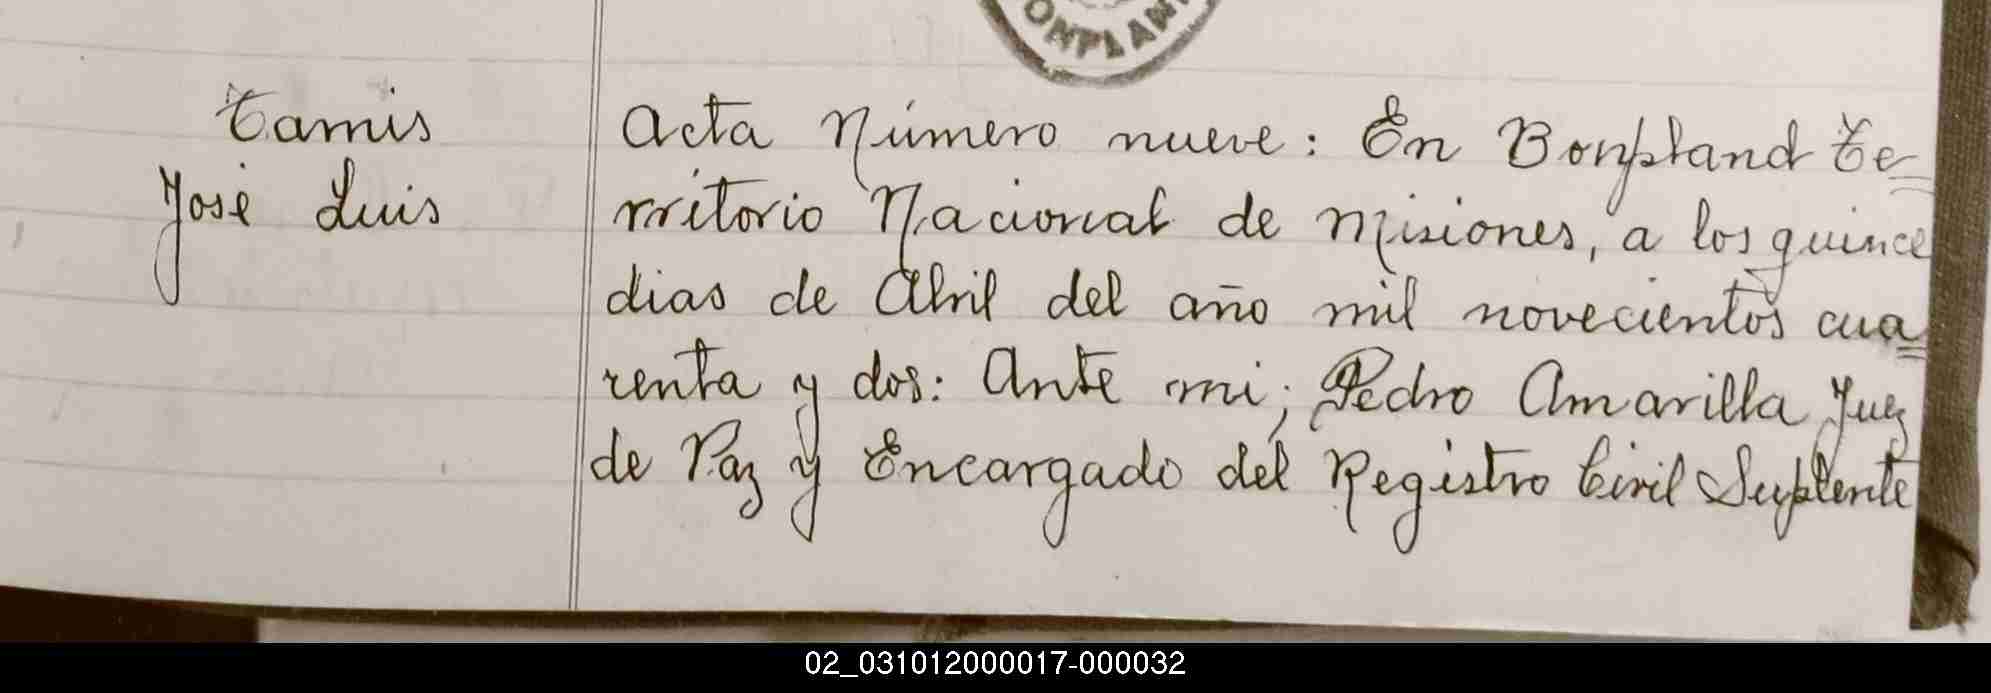 ONPLAN
Tamis
José Luis
Acta Número nueve: En Bonpland Te=
rritorio Nacional de Misiones, a los quince
dias de Abril del año mil novecientos cua=
renta y dos: Ante mi; Pedro Amarilla Juez
de Paz y Encargado del Registro Civil Suplente
02_031012000017-000032